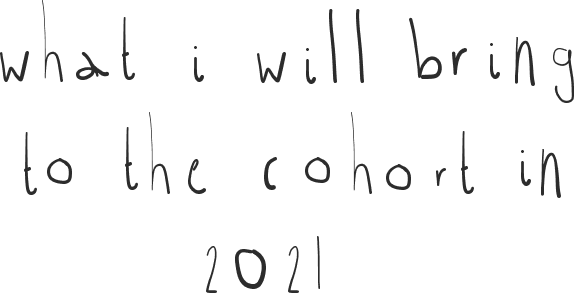 what i will bring
to the cohort in
2021